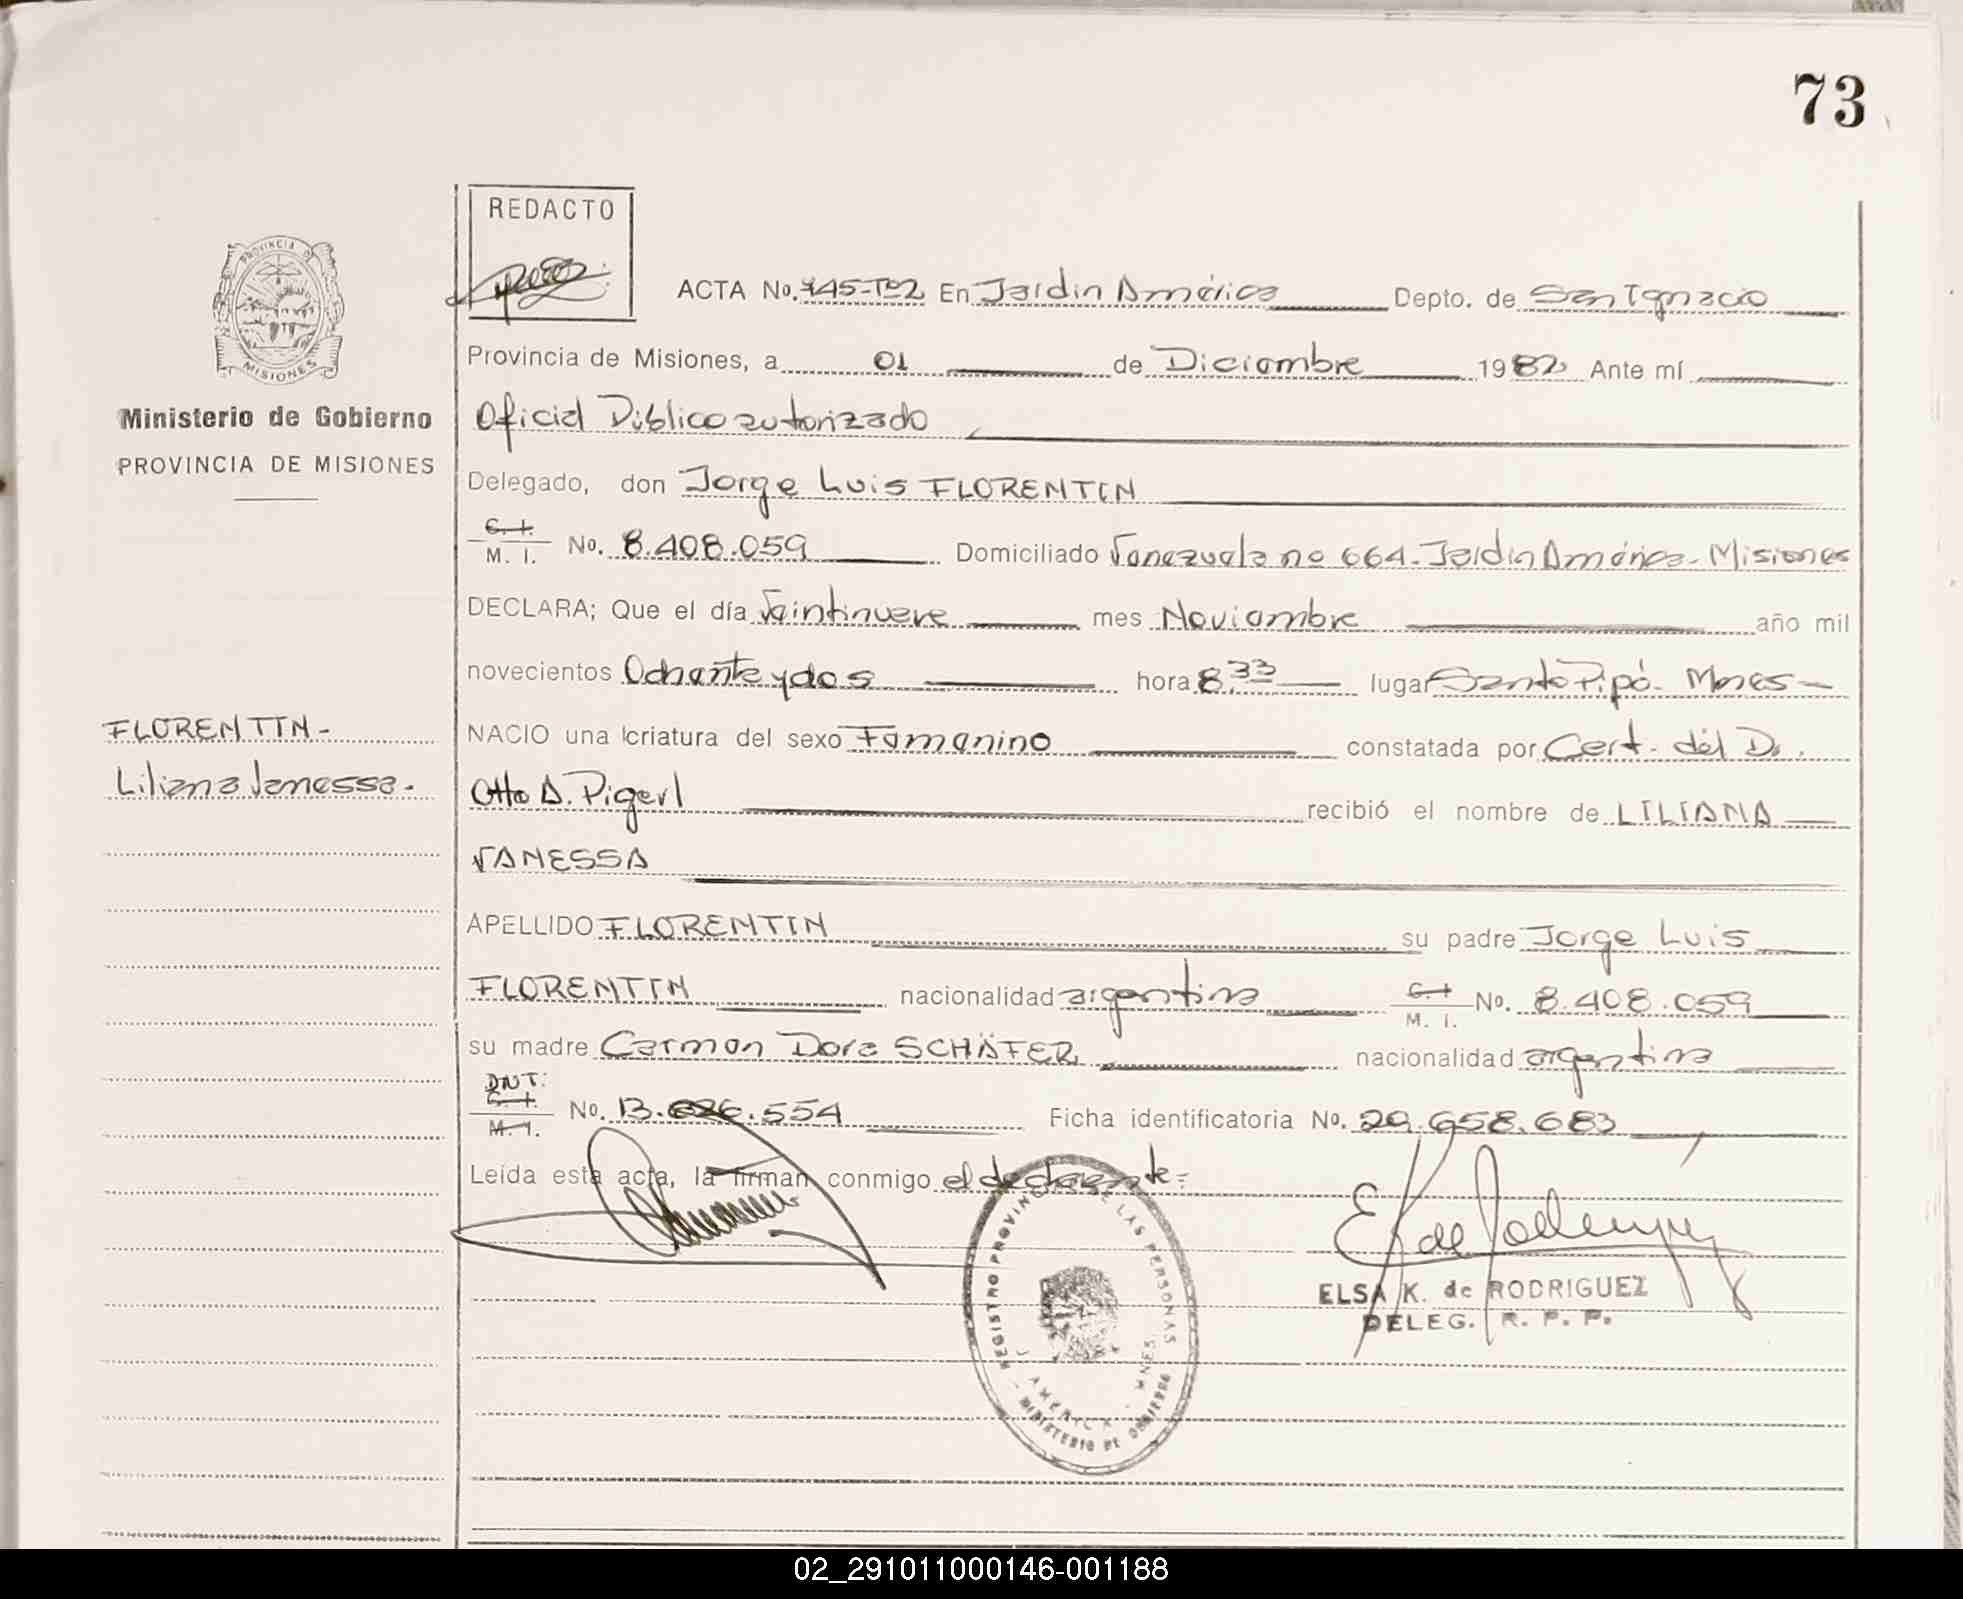 73
REDACTO
PROVINCIA DE
MISIONES
Ministerio de Gobierno
PROVINCIA DE MISIONES
ACTA No. 445-Tº2 En Jardin América Depto. de San Ignacio
Provincia de Misiones, a 01 de Diciembre 1982 Ante mí
Oficial Público autorizado
Delegado, don Jorge Luis FLORENTIN
C. I.
M. I. No. 8.408.059 Domiciliado Venezuela nº 664. Jardin América. Misiones
DECLARA; Que el día Veintinueve mes Noviembre año mil
novecientos Ochenta y dos hora 8,33 lugar Santo Pipó. Mnes
FLORENTIN-
Liliana Vanessa.
NACIO una criatura del sexo Femenino constatada por Cert. del Dr.
Otto A. Pigerl recibió el nombre de LILIANA
VANESSA
APELLIDO FLORENTIN su padre Jorge Luis
FLORENTIN nacionalidad argentina C. I. M. I. No. 8.408.059
su madre Carmen Dora SCHÄFER nacionalidad argentina
DNI:
C. I.
M. I. No. 13. .554 Ficha identificatoria No. 29.658.683
Leída esta acta, la firman conmigo el declarante=
ELSA K. de RODRIGUEZ
DELEG. R. P. P.
REGISTRO PROVINCIAL DE LAS PERSONAS
J. AMERICA - MNES
- MINISTERIO DE GOBIERNO
02_291011000146-001188